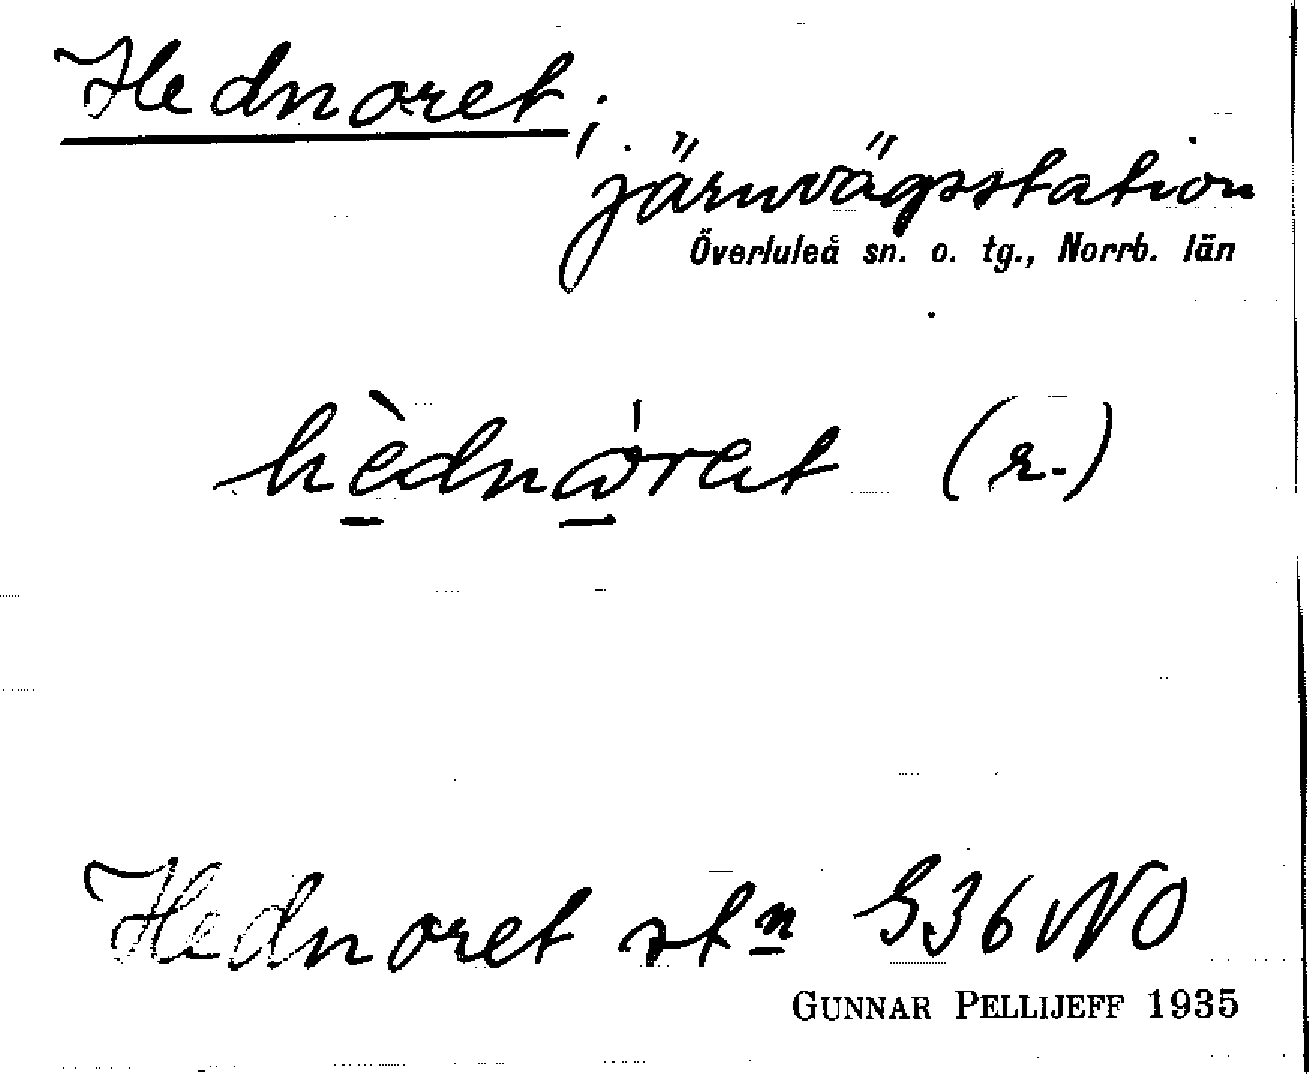 Hednoret;
järnvägsstation
Överluleå sn. o. tg., Norrb. län
hèdnω̍rat (r.)
Hednoret stn G36NO
GUNNAR PELLIJEFF 1935